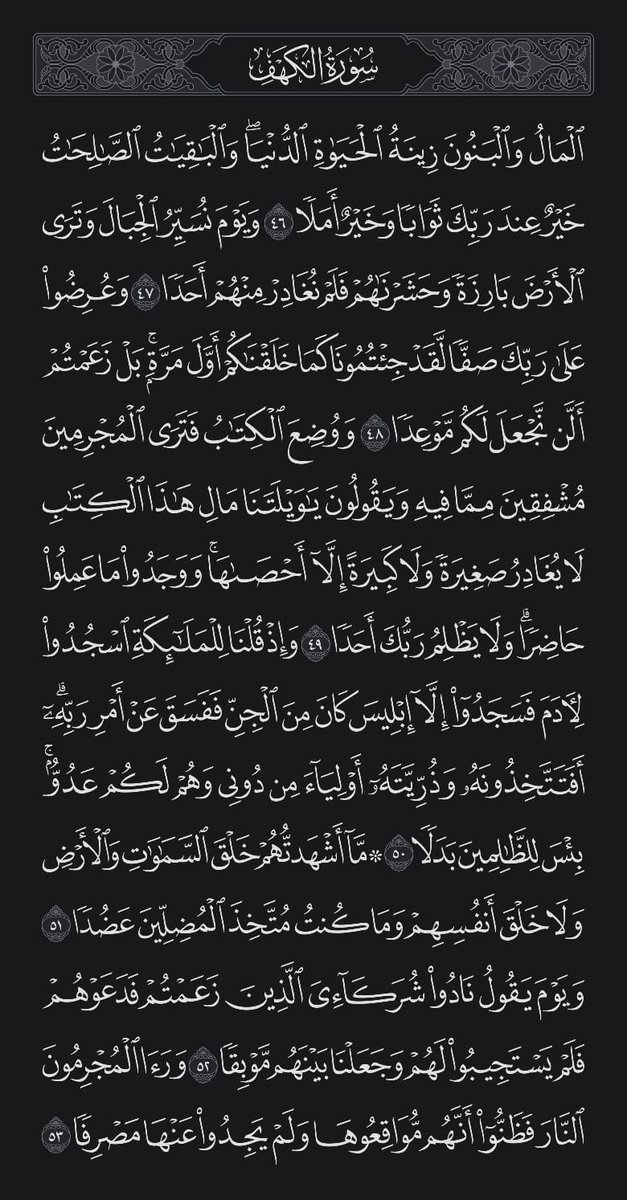 سُورَةُ الكَهْفِ
ٱلْمَالُ وَٱلْبَنُونَ زِينَةُ ٱلْحَيَوٰةِ ٱلدُّنْيَاۖ وَٱلْبَٰقِيَٰتُ ٱلصَّٰلِحَٰتُ
خَيْرٌ عِندَ رَبِّكَ ثَوَابًا وَخَيْرٌ أَمَلًا ٤٦ وَيَوْمَ نُسَيِّرُ ٱلْجِبَالَ وَتَرَى
ٱلْأَرْضَ بَارِزَةً وَحَشَرْنَٰهُمْ فَلَمْ نُغَادِرْ مِنْهُمْ أَحَدًا ٤٧ وَعُرِضُوا۟
عَلَىٰ رَبِّكَ صَفًّا لَّقَدْ جِئْتُمُونَا كَمَا خَلَقْنَٰكُمْ أَوَّلَ مَرَّةٍۭۚ بَلْ زَعَمْتُمْ
أَلَّن نَّجْعَلَ لَكُم مَّوْعِدًا ٤٨ وَوُضِعَ ٱلْكِتَٰبُ فَتَرَى ٱلْمُجْرِمِينَ
مُشْفِقِينَ مِمَّا فِيهِ وَيَقُولُونَ يَٰوَيْلَتَنَا مَالِ هَٰذَا ٱلْكِتَٰبِ
لَا يُغَادِرُ صَغِيرَةً وَلَا كَبِيرَةً إِلَّآ أَحْصَىٰهَاۚ وَوَجَدُوا۟ مَا عَمِلُوا۟
حَاضِرًاۗ وَلَا يَظْلِمُ رَبُّكَ أَحَدًا ٤٩ وَإِذْ قُلْنَا لِلْمَلَٰٓئِكَةِ ٱسْجُدُوا۟
لِءَادَمَ فَسَجَدُوٓا۟ إِلَّآ إِبْلِيسَ كَانَ مِنَ ٱلْجِنِّ فَفَسَقَ عَنْ أَمْرِ رَبِّهِۦٓۗ
أَفَتَتَّخِذُونَهُۥ وَذُرِّيَّتَهُۥٓ أَوْلِيَآءَ مِن دُونِى وَهُمْ لَكُمْ عَدُوٌّۢۚ
بِئْسَ لِلظَّٰلِمِينَ بَدَلًا ٥٠ ۞ مَّآ أَشْهَدتُّهُمْ خَلْقَ ٱلسَّمَٰوَٰتِ وَٱلْأَرْضِ
وَلَا خَلْقَ أَنفُسِهِمْ وَمَا كُنتُ مُتَّخِذَ ٱلْمُضِلِّينَ عَضُدًا ٥١
وَيَوْمَ يَقُولُ نَادُوا۟ شُرَكَآءِىَ ٱلَّذِينَ زَعَمْتُمْ فَدَعَوْهُمْ
فَلَمْ يَسْتَجِيبُوا۟ لَهُمْ وَجَعَلْنَا بَيْنَهُم مَّوْبِقًا ٥٢ وَرَءَا ٱلْمُجْرِمُونَ
ٱلنَّارَ فَظَنُّوٓا۟ أَنَّهُم مُّوَاقِعُوهَا وَلَمْ يَجِدُوا۟ عَنْهَا مَصْرِفًا ٥٣